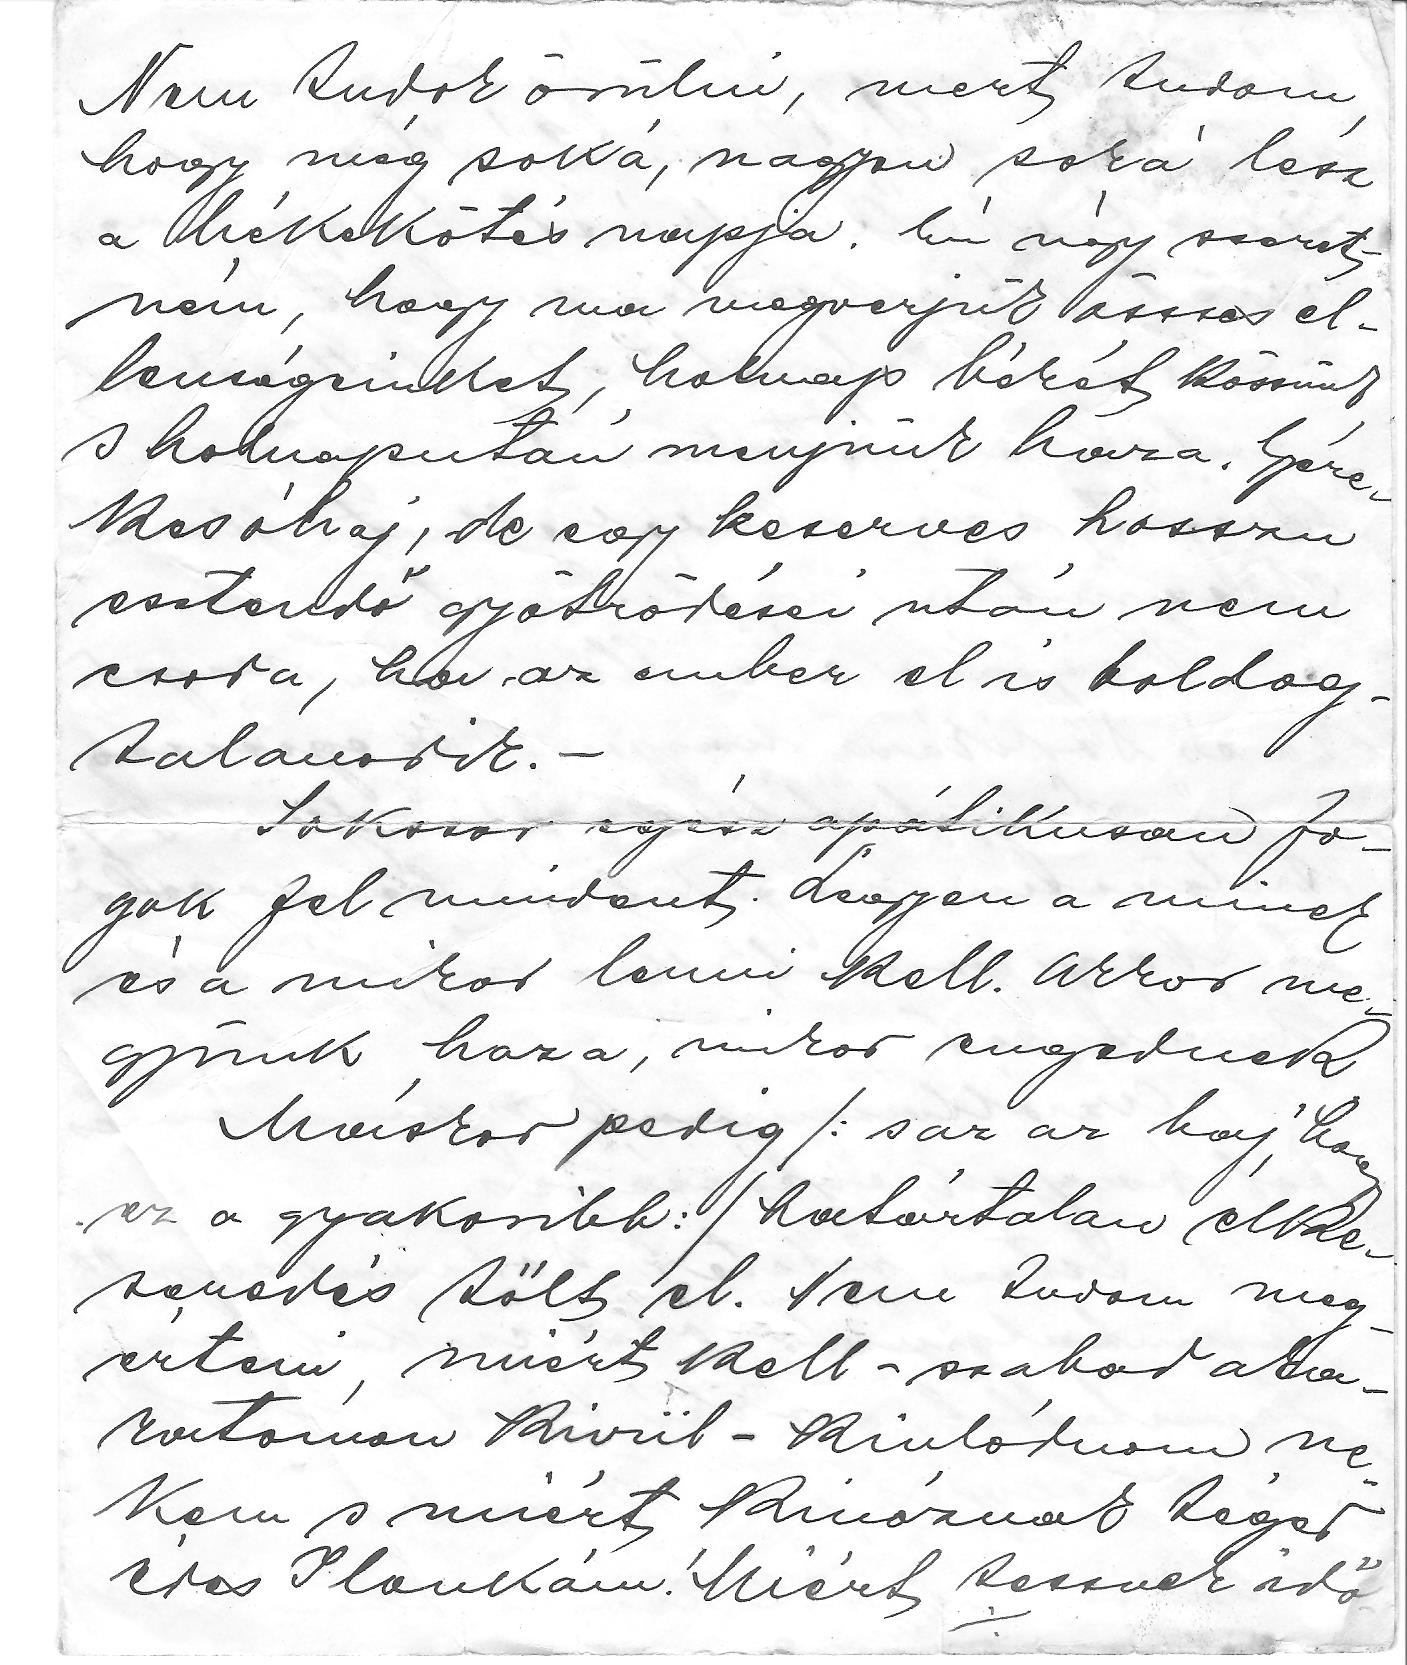 Nem tudok örülni, mert tudom,
hogy még soká, nagyon soká lesz
a békekötés napja. Én úgy szeret-
ném, hogy ma megverjük összes el-
lenségeinket, holnap békét kössünk
s holnapután menjünk haza. Gyere-
kes óhaj, de egy keserves hosszu
esztendő gyötrődései után nem
csoda, ha az ember el is boldog-
talanodik. –
Sokszor egész apátikusan fo-
gok fel mindent. Legyen a minek
és a mikor lenni kell. Akkor me-
gyünk haza, mikor engednek
Máskor pedig /: s az az baj, hogy
ez a gyakoribb :/ határtalan elke-
seredés tölt el. Nem tudom meg-
érteni, miért kell – szabad aka-
ratomon kivül – kinlódnom ne-
kem s miért kinóznak téged
édes Ilonkám! Miért tesznek idő
./.